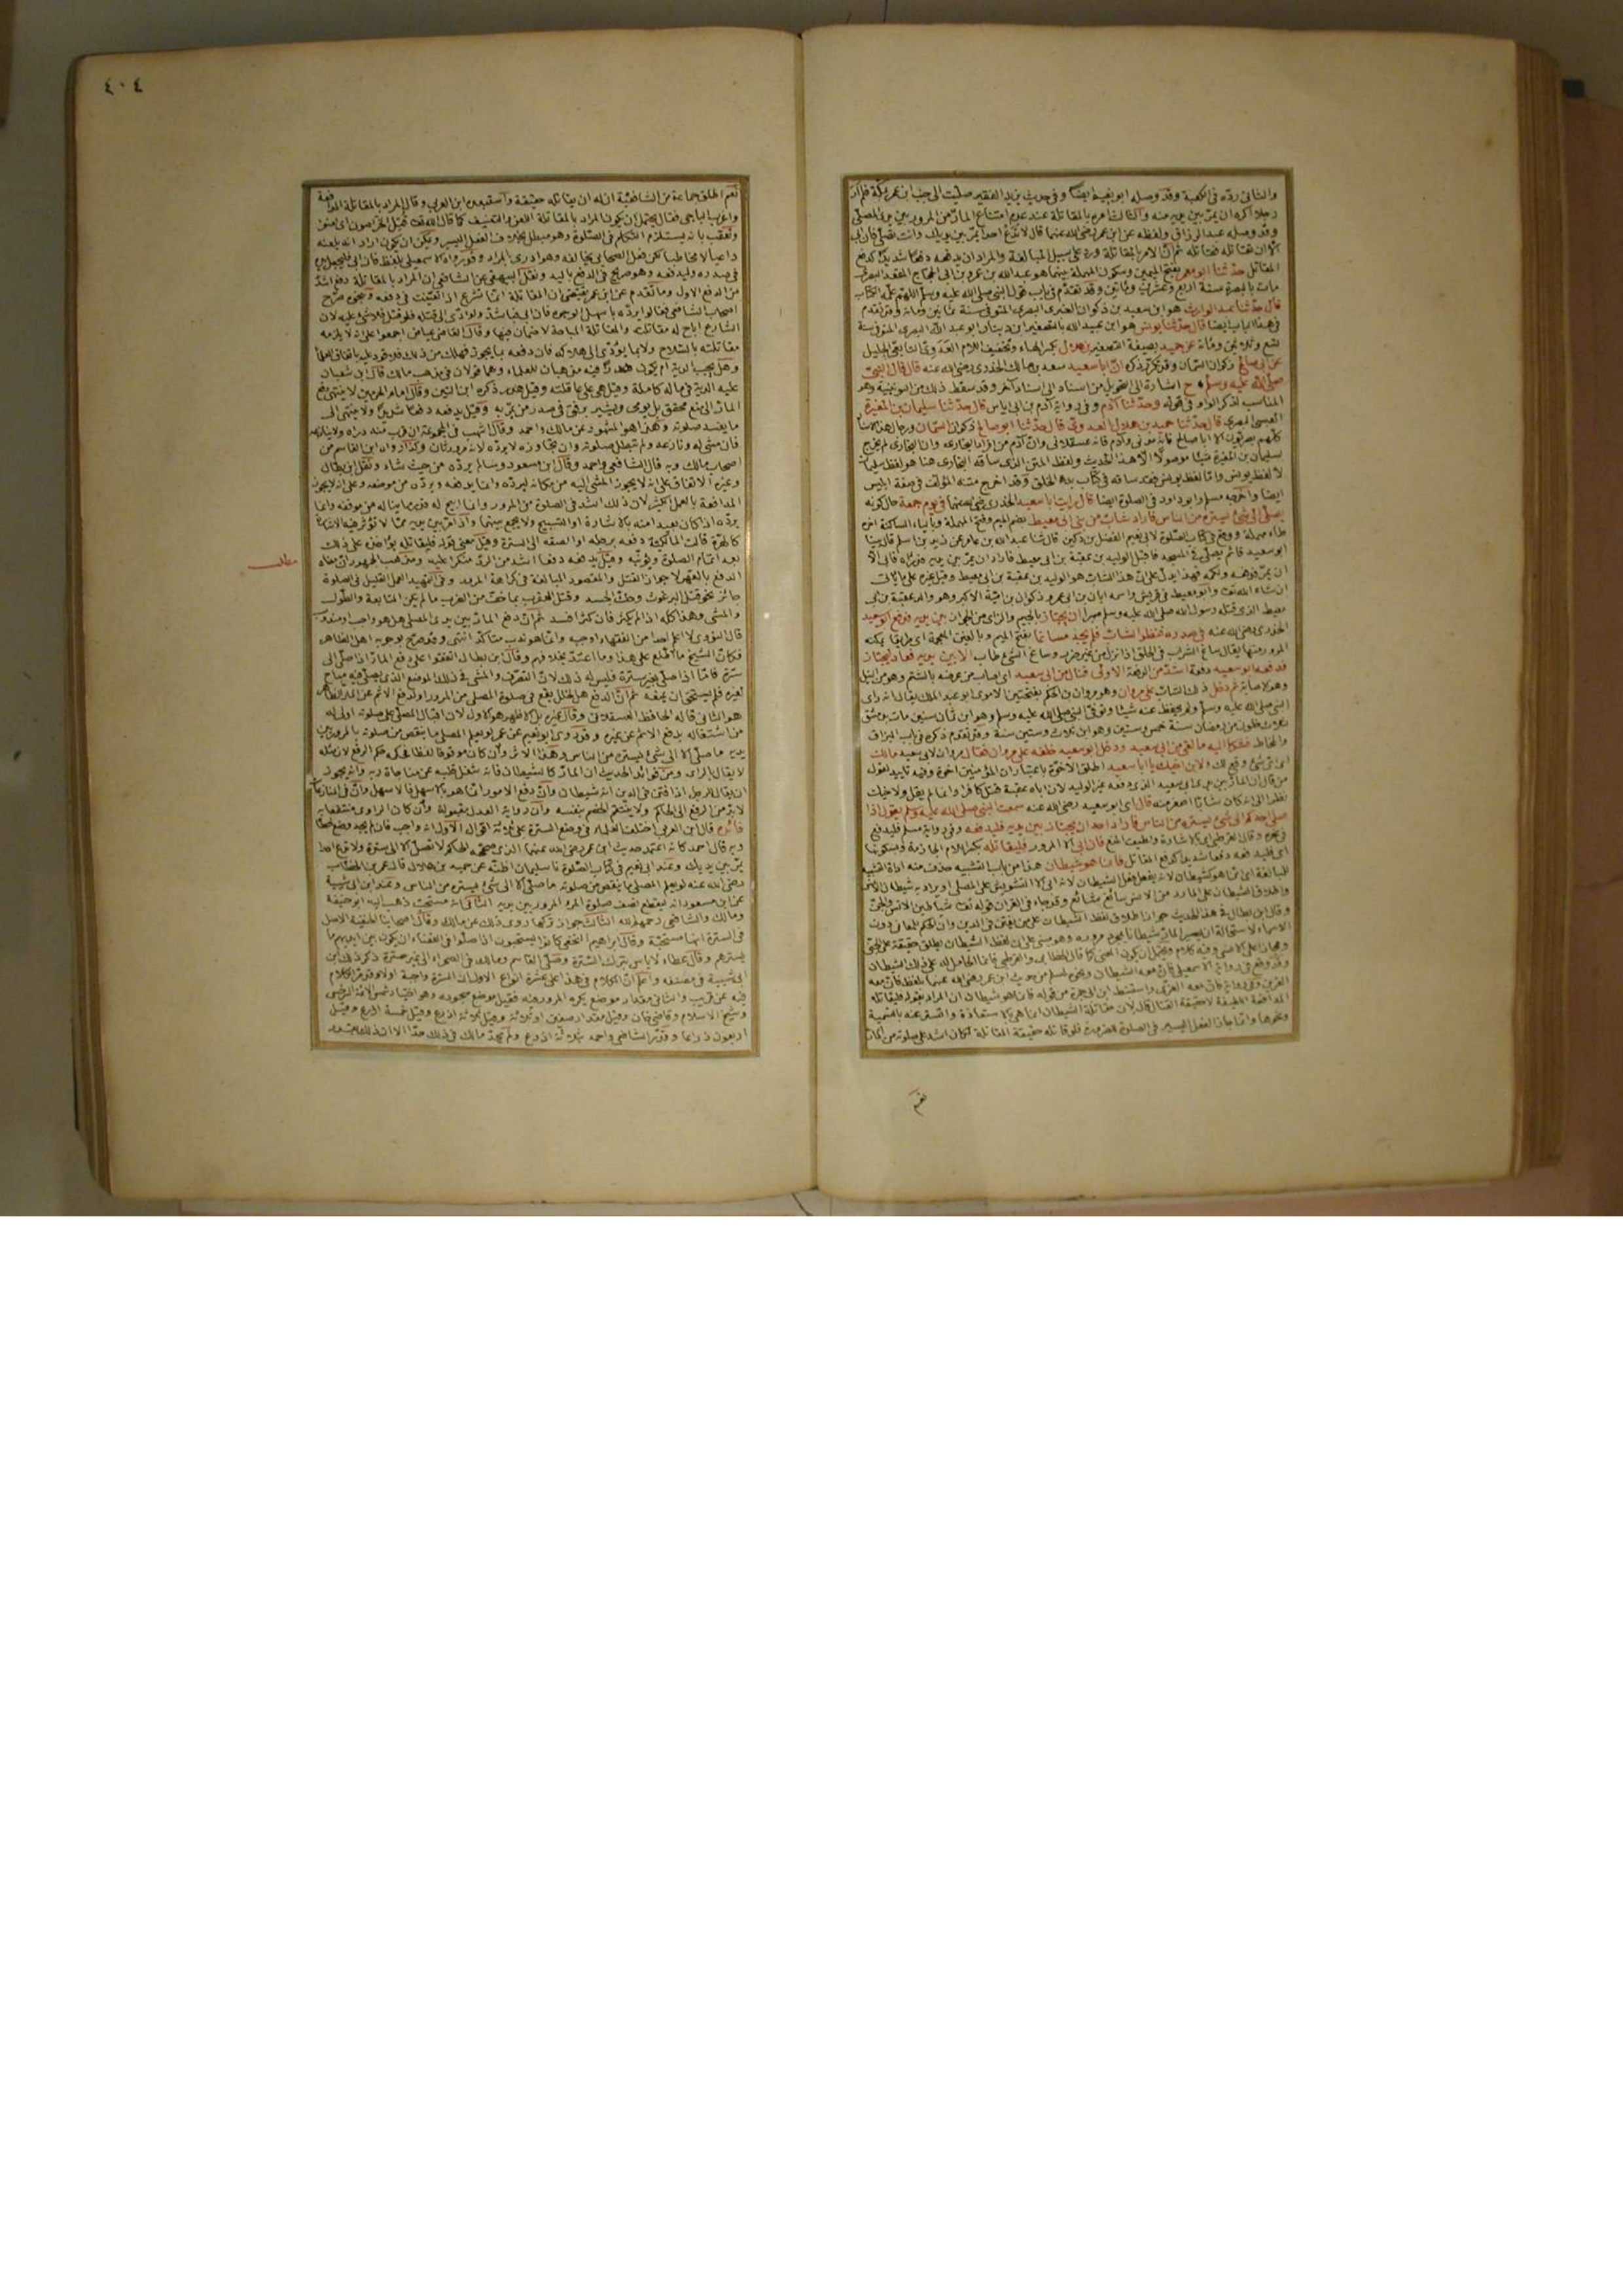 والثاني ردّه في الكعبة وقد وصله ابو نعيم ايضا وفي حديث يزيد الفقير صليت الى جنب ابن عمر بمكة فلم ار
رجلا اكره ان يمرّ بين يديه منه
وقد وصله عبد الرزاق ولفظه عن ابن عمر رضي الله عنهما قال لا تدع احدا يمرّ بين يديك وانت تصلّي فان ابى
الا ان تقاتله فقاتله ثم انّ الامر بالمقاتلة ورد على سبيل المبالغة والمراد ان يدفعه دفعا شديدا كدفع
المقاتل حدّثنا ابو معمر بفتح الميمين وسكون المهملة بينهما هو عبد الله بن عمرو بن ابي الحجاج المقعد البصري
مات بالبصرة سنة اربع وعشرين ومأتين وقد تقدّم في باب قول النبي صلى الله عليه وسلم اللهم علّمه الكتاب
قال حدّثنا عبد الوارث هو ابن سعيد بن ذكوان العنبري البصري المتوفى سنة ثمانين ومائة وقد تقدم
في هذا الباب ايضا قال حدّثنا يونس هو ابن عبيد الله بالتصغير ابن دينار ابو عبد الله البصري المتوفى سنة
تسع وثلاثين ومائة عن حميد بصيغة التصغير بن هلال بكسر الهاء وتخفيف اللام العدوي التابعي الجليل
عن ابي صالح ذكوان السمّان وقد تكرر ذكره انّ ابا سعيد سعد بن مالك الخدري رضي الله عنه قال قال النبي
صلى الله عليه وسلم ح اشارة الى التحويل من اسناد الى اسناد آخر وقد سقط ذلك من بعض النسخ وهو
المناسب لذكر الواو في قوله وحدّثنا آدم وفي رواية آدم بن ابي اياس قال حدّثنا سليمان بن المغيرة
القيسي البصري قال حدّثنا حميد بن هلال العدوي قال حدّثنا ابو صالح ذكوان السمّان ورجال هذا الاسناد
كلهم بصريون الا ابا صالح فانه مدني وآدم فانه عسقلاني وانّ آدم من افراد البخاري وانّ البخاري لم يخرج
لسليمان بن المغيرة شيئا موصولا الا هذا الحديث ولفظ المتن الذي ساقه البخاري هنا هو لفظ سليمان
لا لفظ يونس وامّا لفظ يونس فقد ساقه في كتاب بدء الخلق وقد اخرج متنه المؤلف في صفة ابليس
ايضا واخرجه مسلم وابو داود في الصلوة ايضا قال رأيت ابا سعيد الخدري رضي الله عنه في يوم جمعة حال كونه
يصلّي الى شيء يستره من الناس فاراد شاب من بني ابي معيط بضم الميم وفتح المهملة وبالياء الساكنة آخره
طاء مهملة ووقع في كتاب الصلوة لابي نعيم الفضل بن دكين قال ثنا عبد الله بن عامر عن زيد بن اسلم قال بينا
ابو سعيد قائم يصلّي في المسجد فاقبل الوليد بن عقبة بن ابي معيط فاراد ان يمرّ بين يديه فدرأه فابى الا
ان يمرّ فدفعه ولكمه فهذا يدلّ على انّ هذا الشاب هو الوليد بن عقبة بن ابي معيط وقيل غيره على ما ياتي
ان شاء الله تعالى وابو معيط في قريش واسمه ابان بن ابي عمرو ذكوان بن اميّة الاكبر وهو والد عقبة بن ابي
معيط الذي قتله رسول الله صلى الله عليه وسلم صبرا ان يجتاز بالجيم والزاي من الجواز بين يديه فدفع ابو سعيد
الخدري رضي الله عنه في صدره فنظر الشاب فلم يجد مساغا بفتح الميم وبالغين المعجمة اي طريقا يمكنه
المرور منها يقال ساغ الشراب في الحلق اذا نزل من غير ضرر وساغ الشيء طاب الا بين يديه فعاد ليجتاز
فدفعه ابو سعيد دفعة اشدّ من الدفعة الاولى فنال من ابي سعيد اي اصاب من عرضه بالشتم وهو من النيل
وهو الاصابة ثم دخل ذلك الشاب على مروان وهو مروان بن الحكم بفتحتين الاموي ابو عبد الملك يقال انه رأى
النبي صلى الله عليه وسلم ولم يحفظ عنه شيئا وتوفي النبي صلى الله عليه وسلم وهو ابن ثمان سنين مات بدمشق
لثلاث خلون من رمضان سنة خمس وستين وهو ابن ثلاث وستين سنة وقد تقدم ذكره في باب البزاق
والمخاط فشكا اليه ما لقي من ابي سعيد ودخل ابو سعيد خلفه على مروان فقال مروان لابي سعيد مالك
اي ايّ شيء وقع لك ولابن اخيك يا ابا سعيد اطلق الاخوّة باعتبار ان المؤمنين اخوة وفيه تأييد لقول
من قال ان المارّ بين يدي ابي سعيد الذي دفعه غير الوليد لان اباه عقبة قتل كافرا وانما لم يقل ولاخيك
نظرا الى انه كان شابا اصغر منه قال اي ابو سعيد رضي الله عنه سمعت النبي صلى الله عليه وسلم يقول اذا
صلّى احدكم الى شيء يستره من الناس فاراد احد ان يجتاز بين يديه فليدفعه وفي رواية مسلم فليدفع
في نحره وقال القرطبي اي بالاشارة ولطيف المنع فان ابى الا المرور فليقاتله بكسر اللام الجازمة وبسكونها
اي فليدفعه دفعا شديدا كدفع المقاتل فانما هو شيطان هذا من باب التشبيه حذف منه اداة التشبيه
للمبالغة اي انما هو كشيطان لانه يفعل فعل الشيطان لانه ابى الا التشويش على المصلّي او يراد به شيطان الانس
واطلاق الشيطان على المارد من الانس سائغ شائع وقد جاء في القران قوله تعالى شياطين الانس والجنّ
وقال ابن بطال في هذا الحديث جواز اطلاق لفظ الشيطان على من يفتن في الدين وانّ الحكم للمعاني دون
الاسماء لاستحالة ان يصير المارّ شيطانا بمجرد مروره وهو مبني على ان لفظ الشيطان يطلق حقيقة على الجنّي
ومجازا على الانسي وفيه كلام ويحتمل ان يكون المعنى كما قال الخطابي والقرطبي فانما الحامل له على ذلك الشيطان
وقد وقع في رواية الاسماعيلي فانّ معه الشيطان ونحوه لمسلم من حديث ابن عمر رضي الله عنهما بلفظ فانّ معه
القرين واستنبط ابن ابي جمرة من قوله فانما هو شيطان انّ المراد بقوله فليقاتله
المدافعة اللطيفة لا حقيقة القتال قال لانّ مقاتلة الشيطان انما هي بالاستعاذة والتستر عنه بالتسمية
ونحوها وانما جاز الفعل اليسير في الصلوة للضرورة فلو قاتله حقيقة المقاتلة لكان اشدّ على صلوته من المارّ
نعم
٤٠٤
نعم اطلق جماعة من الشافعيّة انّ له ان يقاتله حقيقة واستبعده ابن العربي وقال المراد بالمقاتلة المدافعة
واغرب الباجي فقال يحتمل ان يكون المراد بالمقاتلة اللعن او التعنيف كما قال الله تعالى قتل الخرّاصون اي لعنوا
وتعقّب بانه يستلزم التكلم في الصلوة وهو مبطل بخلاف الفعل اليسير ويمكن ان يكون اراد انه يلعنه
داعيا لا مخاطبا لكن فعل الصحابي يخالفه وهو ادرى بالمراد وقد رواه الاسمعيلي بلفظ فان ابى فليجعل يده
في صدره وليدفعه وهو صريح في الدفع باليد ونقل البيهقي عن الشافعي ان المراد بالمقاتلة دفع اشدّ
من الدفع الاول وما تقدم عن ابن عمر يقتضي ان المقاتلة انما تشرع اذا تعيّنت في دفعه وبنحوه صرّح
اصحاب الشافعي فقالوا يردّه باسهل الوجوه فان ابى فباشدّ ولو ادّى الى قتله فلو قتل فلا شيء عليه لان
الشارع اباح له مقاتلته والمقاتلة المباحة لا ضمان فيها وقال القاضي عياض اجمعوا على انه لا يلزمه
مقاتلته بالسلاح ولا بما يؤدّي الى هلاكه فان دفعه بما يجوز فهلك من ذلك فلا قود عليه باتفاق العلماء
وهل يجب الدية ام يكون هدرا فيه مذهبان للعلماء وهما قولان في مذهب مالك قال ابن شعبان
عليه الدية في ماله كاملة وقيل هي على عاقلته وقيل هدر ذكره ابن التين وقال امام الحرمين لا ينتهي دفع
المارّ الى منع محقق بل يومي ويشير برفق في صدره من يمرّ به وقيل يدفعه دفعا شديدا ولا ينتهي الى
ما يفسد صلوته وهذا هو المشهور عن مالك واحمد وقال اشهب في المجموعة ان قرب منه درأه ولا ينازعه
فان مشى له ونازعه لم تبطل صلوته وان تجاوزه لا يردّه لانه مرور ثان وكذا رواه ابن القاسم من
اصحاب مالك وبه قال الشافعي واحمد وقال ابن مسعود وسالم يردّه من حيث شاء ونقل ابن بطال
وغيره الاتفاق على انه لا يجوز المشي اليه من مكانه ليردّه وانما يدفعه ويردّه من موضعه وعلى انه لا يجوز
المدافعة بالعمل الكثير لان ذلك اشدّ في الصلوة من المرور وانما ابيح له قدر ما يناله من موقفه وانما
يردّه اذا كان بعيدا منه بالاشارة او التسبيح ولا يجمع بينهما واذا مرّ بين يديه ممّا لا تؤثر فيه الاشارة
كالهرّة قالت المالكية دفعه برجله او الصقه الى السترة وقيل معنى قوله فليقاتله يؤاخذه على ذلك
بعد اتمام الصلوة ويؤنّبه وقيل يدفعه دفعا اشدّ من الردّ منكرا عليه ومذهب الجمهور انّ معناه
الدفع بالقهر لا جواز القتل والمقصود المبالغة في كراهة المرور وفي التمهيد العمل القليل في الصلوة
جائز نحو قتل البرغوث وحكّ الجسد وقتل العقرب بما خفّ من الضرب ما لم يكن المتابعة والطول
والمشي وهذا كله اذا لم يكثر فان كثر افسد ثم انّ دفع المارّ بين يدي المصلّي هل هو واجب او مندوب
قال النووي لا اعلم احدا من الفقهاء اوجبه وانما هو ندب متأكد انتهى وقد صرّح بوجوبه اهل الظاهر
فكأنّ الشيخ ما اطّلع على هذا وما اعتدّ بخلافهم وقال ابن بطال اتفقوا على دفع المارّ اذا صلّى الى
سترة فامّا اذا صلّى بغير سترة فليس له ذلك لانّ التصرّف والمشي في ذلك الموضع الذي يصلّي فيه مباح
لغيره فلم يستحق ان يمنعه ثم انّ الدفع هل هو لخلل يقع في صلوة المصلي من المرور او لدفع الاثم عن المارّ الظاهر
هو الثاني قاله الحافظ العسقلاني وقال غيره بل الاظهر هو الاول لان اقبال المصلّي على صلوته اولى له
من اشتغاله بدفع الاثم عن غيره وقد روى ابو نعيم عن عمر لو يعلم المصلي ما ينقص من صلوته بالمرور بين
يديه ما صلّى الا الى شيء يستره من الناس وهذا الاثر وان كان موقوفا لفظا فحكمه حكم الرفع لان مثله
لا يقال بالرأي ومن فوائد الحديث ان المارّ كالشيطان فانه شغل قلبه عن مناجاة ربه وانه يجوز
ان يقال للرجل اذا فتن في الدين انه شيطان وانّ دفع الامور انما هو بالاسهل فالاسهل وانّ في المنازعات
لابدّ من الرفع الى الحاكم ولا ينتقم الخصم بنفسه وانّ رواية العدل مقبولة وان كان الراوي منتفعا به
فائدة قال ابن العربي اختلف العلماء في وضع السترة على ثلاثة اقوال الاول انه واجب فان لم يجد وضع خطّا
وبه قال احمد كانه اعتمد حديث ابن عمر رضي الله عنهما الذي صححه الحاكم لا تصلّ الا الى سترة ولا تدع احدا
يمرّ بين يديك وعند ابي نعيم في كتاب الصلوة نا سليمان اظنّه عن حميد بن هلال قال عمر بن الخطاب
رضي الله عنه لو يعلم المصلي ما ينقص من صلوته ما صلّى الا الى شيء يستره من الناس وعند ابن ابي شيبة
عن ابن مسعود انه ليقطع نصف صلوة المرء المرور بين يديه الثاني انه مستحب ذهب اليه ابو حنيفة
ومالك والشافعي رحمهم الله الثالث جواز تركها روي ذلك عن مالك وقال اصحابنا الحنفية الاصل
في السترة انها مستحبّة وقال ابراهيم النخعي كانوا يستحبون اذا صلّوا في الفضاء ان يكون بين ايديهم ما
يسترهم وقال عطاء لا باس بترك السترة وصلّى القاسم وسالم في الصحراء الى غير سترة ذكر ذلك ابن
ابي شيبة في مصنفه واعلم انّ الكلام في هذا على عشرة انواع الاول ان السترة واجبة او لا وقد مرّ الكلام
فيه عن قريب والثاني مقدار موضع يكره المرور فيه فقيل موضع سجوده وهو اختيار شمس الائمة السرخسي
وشيخ الاسلام وقاضي خان وقيل مقدار صفين او ثلاثة وقيل بثلاثة اذرع وقيل خمسة اذرع وقيل
اربعون ذراعا وقدّر الشافعي واحمد بثلاثة اذرع ولم يحدّ مالك في ذلك حدّا الا ان ذلك بقدر
مطلب